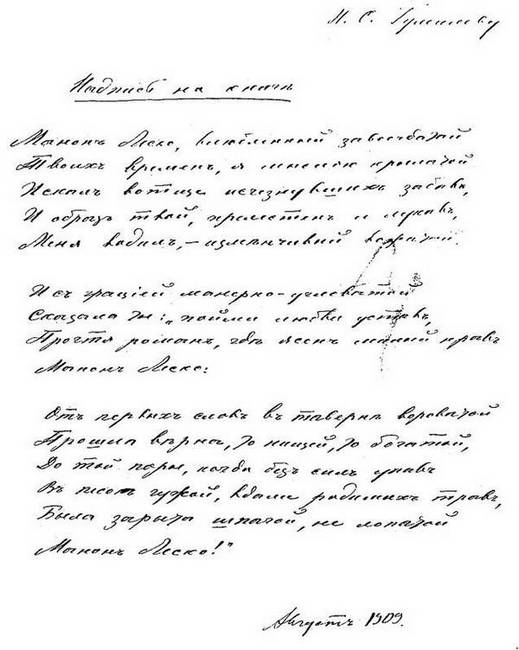 Н. С. Гумилеву
Надпись на книгѣ
Манонъ Леско, влюбленный завсегдатай
Твоихъ временъ, я мыслію крылатой
Искалъ вотще исчезнувшихъ забавъ,
И образъ твой, прелестенъ и лукавъ,
Меня водилъ, – измѣнчивый вожатый.
И съ граціей манерно-угловатой
Сказала ты: "пойми любви уставъ,
Прочтя романъ, гдѣ ясенъ милый нравъ
Манонъ Леско:
Отъ первыхъ словъ въ тавернѣ вороватой
Прошла вѣрна, то нищей, то богатой,
До той поры, когда безъ силъ упавъ
Въ песокъ чужой, вдали родимыхъ травъ,
Была зарыта шпагой, не лопатой
Манонъ Леско!"
Августъ 1909.